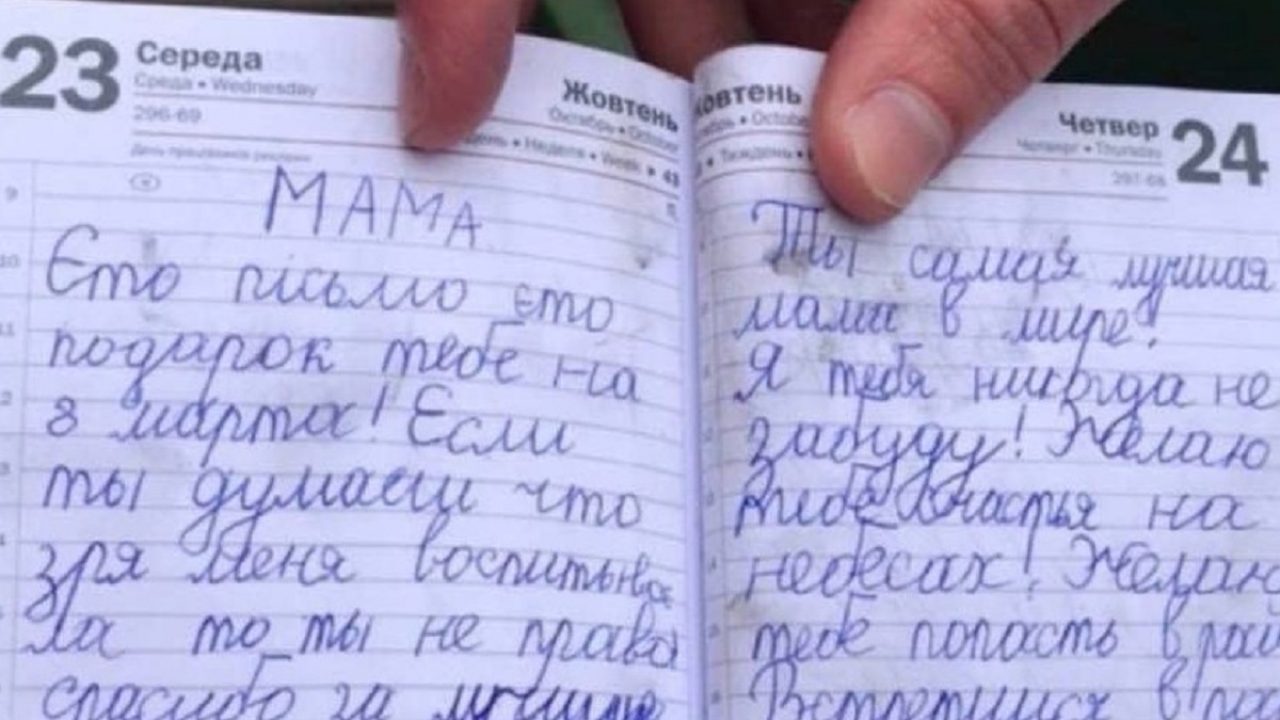 23 Середа
Среда • Wednesday
296-69
Жовтень
Октябрь • October
• Неделя • Week • 43
9
МАМА
10
Єто письмо єто
11
подарок тебе на
8 марта! Єсли
ты думаеш что
зря меня воспитыва
ла то ты не права
спасибо за
Жовтень
• Octobe
• Тиждень •
Четвер 24
Четверг • Thursday
297-68
Ты самая лучшая
мама в мире!
Я тебя никогда не
забуду! Желаю
тебе счастья на
небесах! Желаю
тебе попасть в рай
Встретимся в